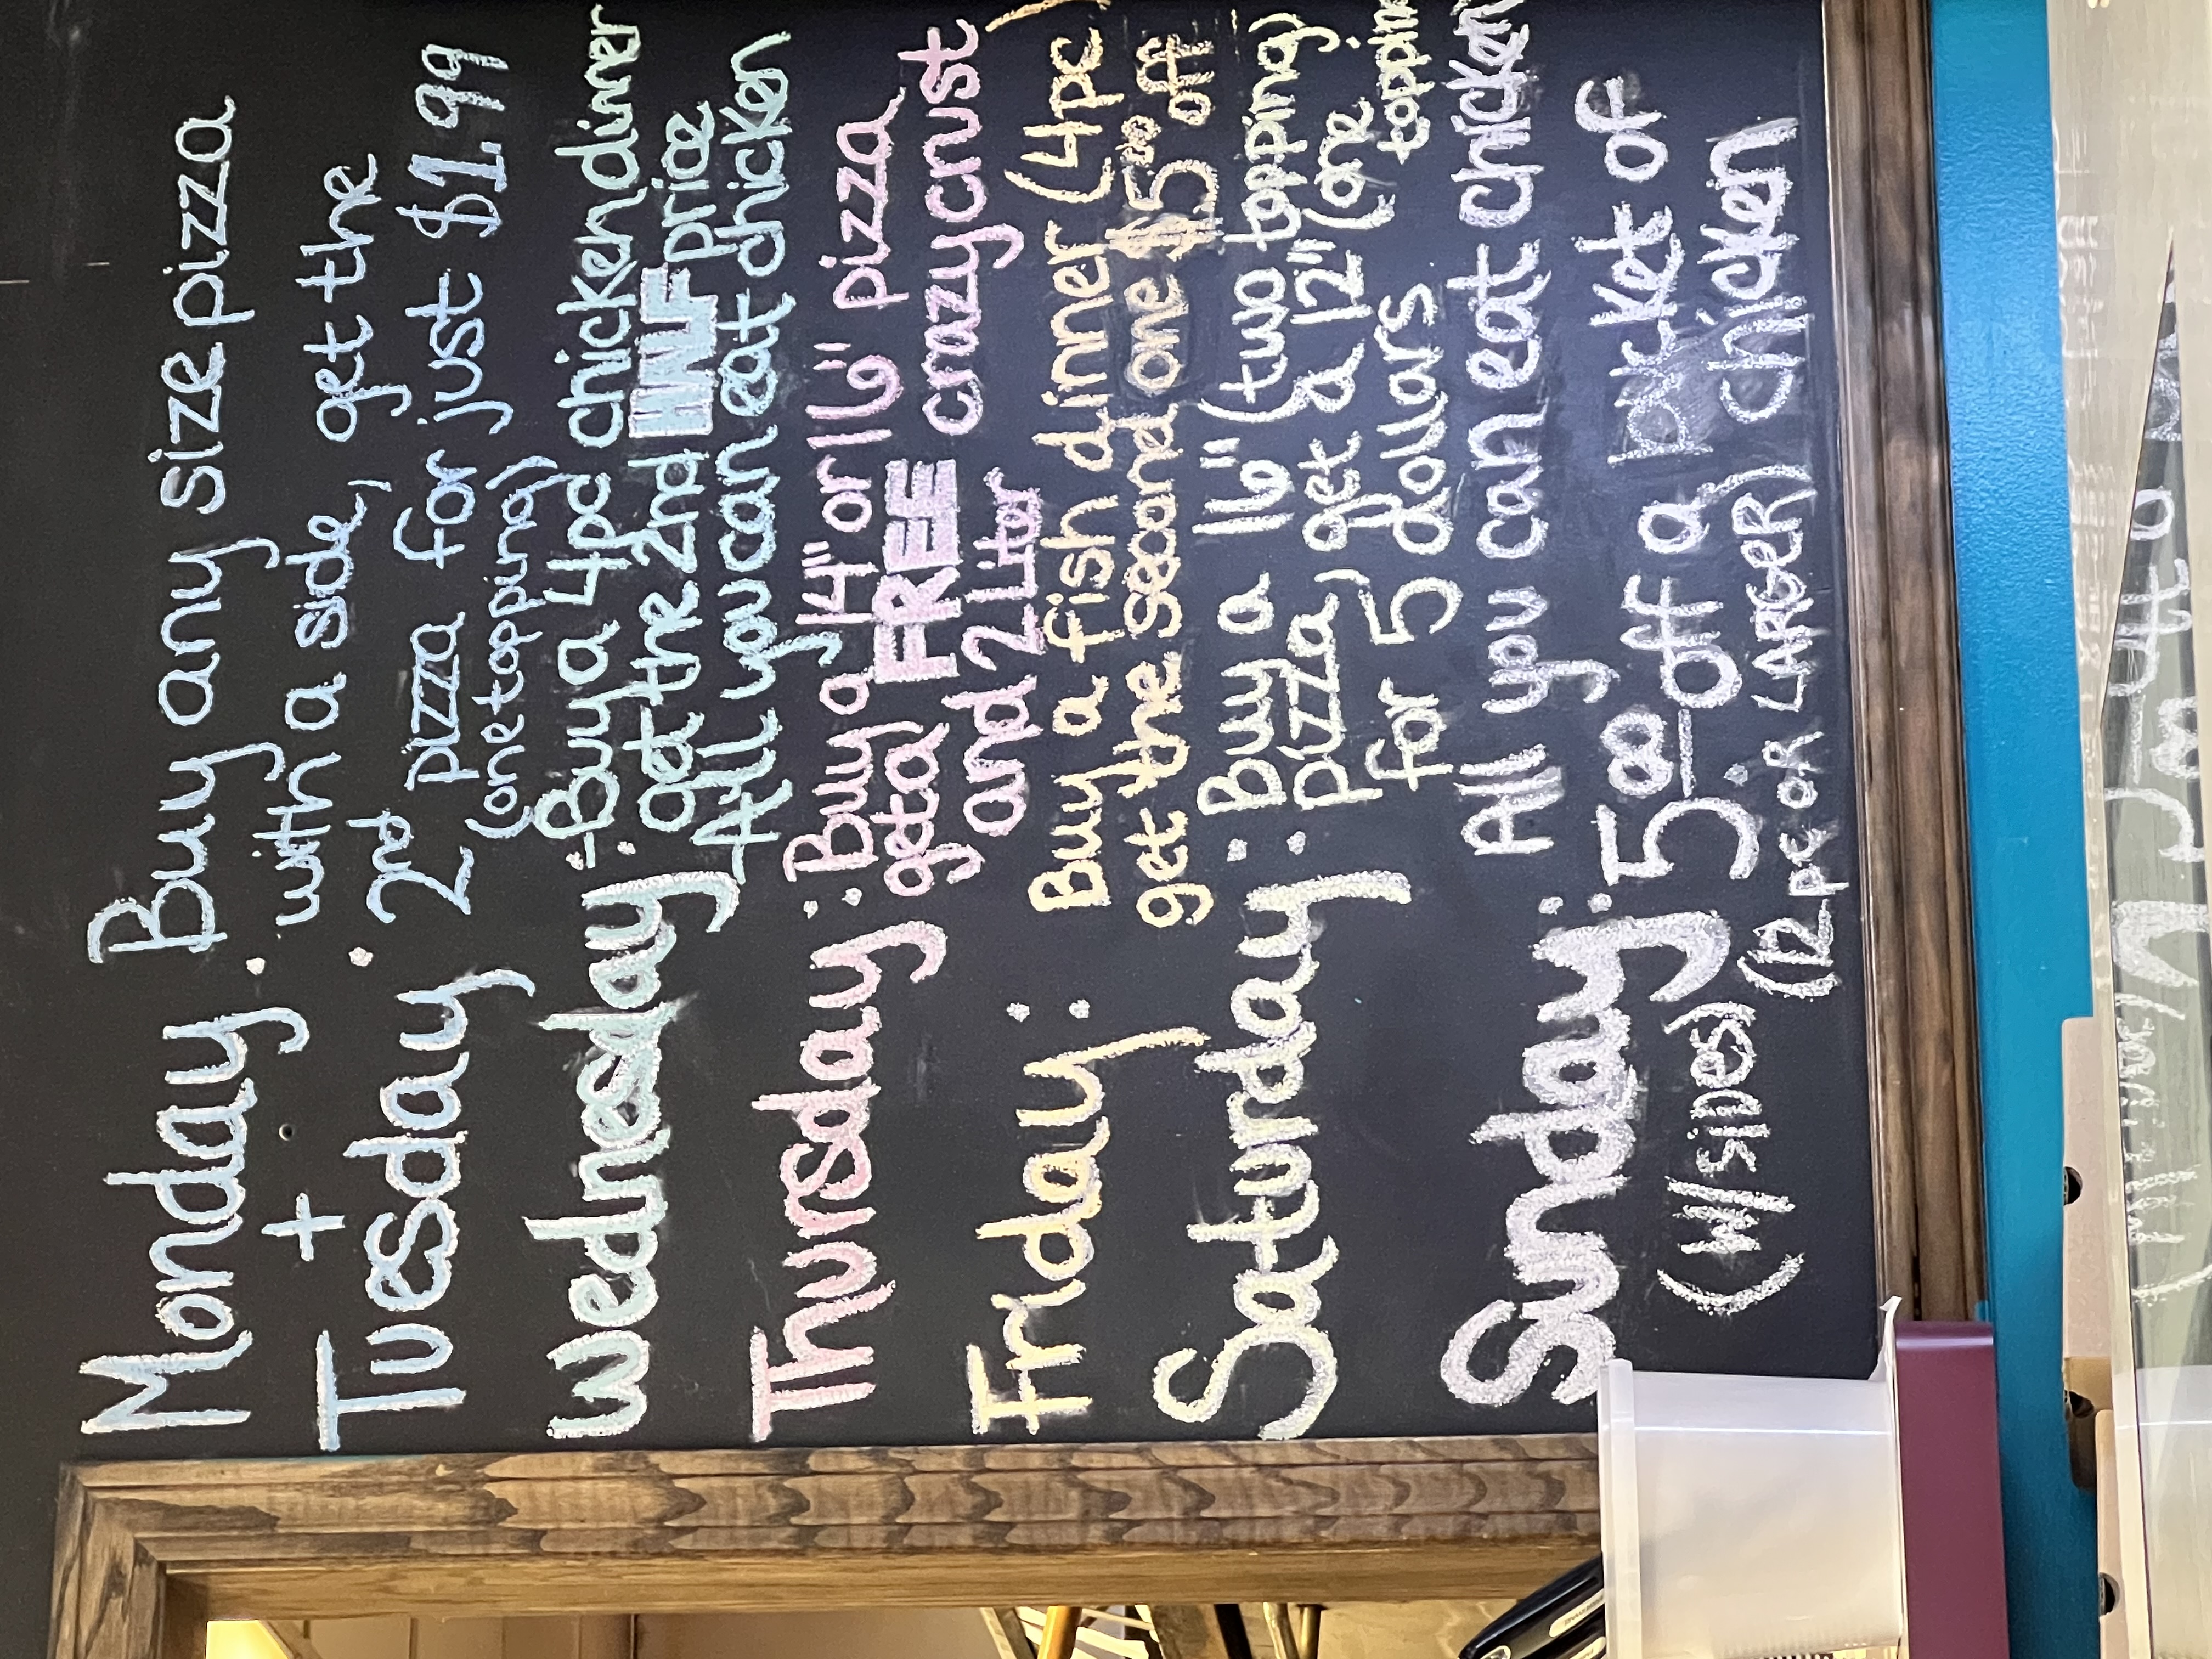 Monday : Buy any size pizza
+ with a side, get the
Tuesday 2nd pizza for just $1.99
(one topping)
Wednesday: -Buy a 4pc chicken dinner
get the 2nd HALF price
-All you can eat chicken
Thursday: Buy a 14" or 16" pizza
get a FREE crazy crust
and 2 Liter
Friday: Buy a fish dinner (4pc)
get the second one $5.00 off
Saturday: Buy a 16" (two topping)
pizza, get a 12" (one
for 5 dollars topping
Sunday: All you can eat chicken
5.00 off a bucket of
(W/SIDES) (12 pc OR LARGER) chicken